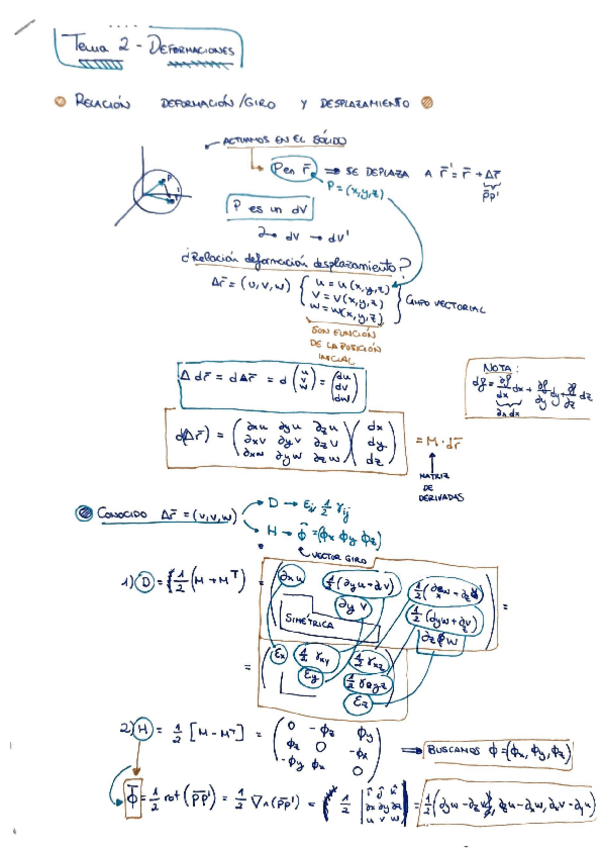 Tema 2 - DEFORMACIONES
RELACIÓN DEFORMACIÓN/GIRO Y DESPLAZAMIENTO
ACTUAMOS EN EL SÓLIDO
P en r̄ ⇒ SE DEPLAZA A r̄' = r̄ + Δr̄
P = (x,y,z)
p̄p'
P es un dV
dV → dV'
¿Relación deformación desplazamiento?
Δr̄ = (u, v, w) { u = u(x,y,z)
v = v(x,y,z)
w = w(x,y,z)
CAMPO VECTORIAL
SON FUNCIÓN
DE LA POSICIÓN
INICIAL
Δ dr̄ = dΔr̄ = d (u v w) = (du dv dw)
NOTA:
df = ∂f/dx dx + ∂f/dy dy + ∂f/∂z dz
d(Δr̄) = (∂xu ∂yu ∂zu
∂xv ∂yv ∂zv
∂xw ∂yw ∂zw) (dx
dy
dz) = M · dr̄
MATRIZ
DE
DERIVADAS
CONOCIDO Δr̄ = (u,v,w)
D → εij ½ γij
H → φ̄ = (φx φy φz)
VECTOR GIRO
1) D = ½ (M + Mᵀ) = (∂xu ½(∂yu+∂xv)
∂yv ½(∂yw+∂zv)
SIMÉTRICA ∂z w) =
= (εx ½ γxy ½ γxz
εy ½ γyz
εz)
2) H = ½ [M - Mᵀ] = (0 -φz φy
φz 0 -φx
-φy φx 0) ⇒ BUSCAMOS φ = (φx, φy, φz)
Φ̄ = ½ rot (p̄p') = ½ ∇∧(p̄p') = ½ |i j k
∂x ∂y ∂z
u v w| = ½ (∂yw - ∂zv, ∂zu - ∂xw, ∂xv - ∂yu)